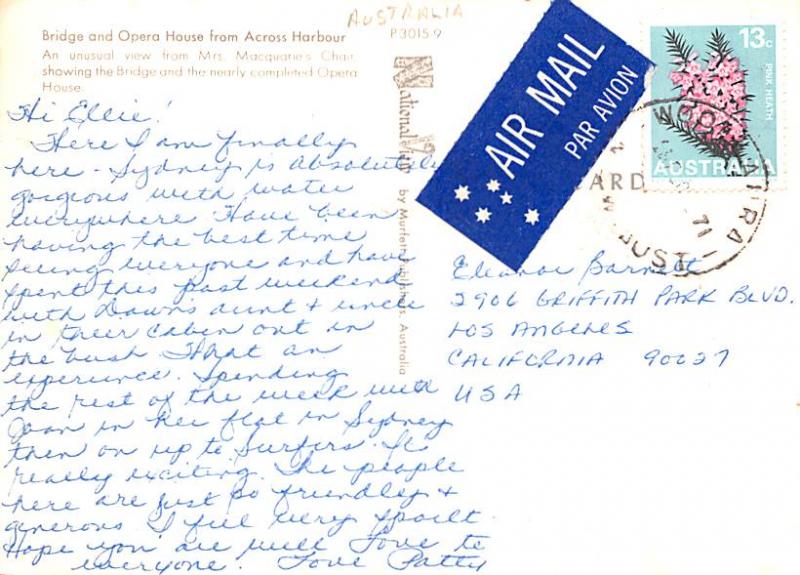 AUSTRALIA
Bridge and Opera House from Across Harbour
P 3015-9
An unusual view from Mrs. Macquarie's Chair
showing the Bridge and the nearly completed Opera
House.
Hi Ellie!
Here I am finally
here - Sydney is absolutely
gorgious with water
everywhere Have been
having the best time
seeing everyone and have
spent this past weekend
with Dawn's aunt & uncle
in their cabin out in
the bush What an
experience. Spending
the rest of the week with
Joan in her flat in Sydney
then on up to Surfers. It
really exciting. The people
here are just so friendly &
generous I feel very spoilt
Hope you are well Love to
everyone. Love Patty
National View
by Murfett Publishers, Australia
AIR MAIL
PAR AVION
13c
PINK HEATH
AUSTRALIA
CARD
71
AUST
Eleanor Barnett
2906 GRIFFITH PARK BLVD.
LOS ANGELES
CALIFORNIA 90027
USA